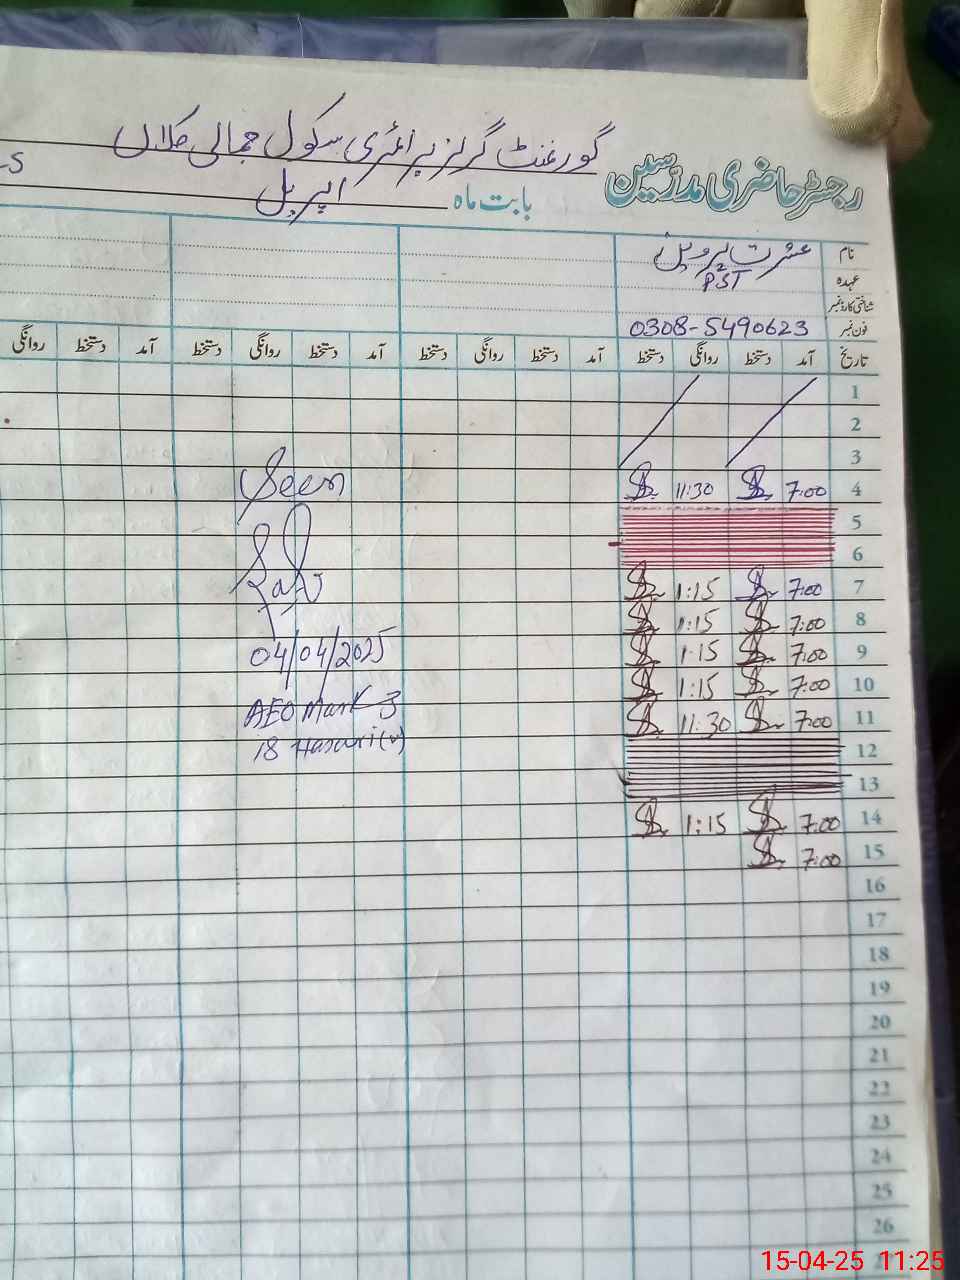 گورنمنٹ گرلز پرائمری سکول جمالی کلاں
رجسٹر حاضری مدرسین
بابت ماہ اپریل
نام عشرت پروین
عہدہ PST
شناختی کارڈ نمبر
فون نمبر 0308-5490623
تاریخ آمد دستخط روانگی دستخط آمد دستخط روانگی دستخط آمد دستخط روانگی دستخط آمد دستخط روانگی
1
2
3
4 7:00 11:30
5
6
7 7:00 1:15
8 7:00 1:15
9 7:00 1:15
10 7:00 1:15
11 7:00 11:30
12
13
14 7:00 1:15
15 7:00
16
17
18
19
20
21
22
23
24
25
26
Seen
04/04/2025
AEO
15-04-25 11:25